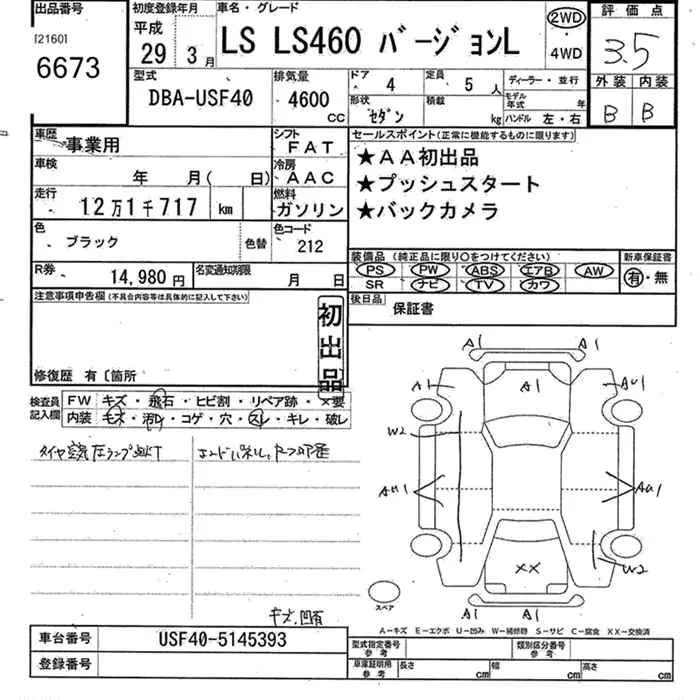 出品番号
[2160]
6673
初度登録年月
平成
29 3月
車名・グレード
LS LS460 バージョンL
2WD
・
4WD
評価点
3.5
外装 内装
B B
型式
DBA-USF40
排気量
4600
CC
ドア 4
定員 5 人
形状
セダン
積載
kg
ディーラー・並行
モデル年式 年
ハンドル 左・右
車歴
事業用
シフト
FAT
車検
年 月( 日)
冷房
AAC
走行
12万1千717 km
燃料
ガソリン
色
ブラック
色替
色コード
212
R券
14,980 円
名変通知期限
月 日
セールスポイント(正常に機能するものに限ります)
★AA初出品
★プッシュスタート
★バックカメラ
装備品 (純正品に限り○をつけてください)
PS PW ABS エアB AW
SR ナビ TV カワ
新車保証書
有・無
後日品
保証書
注意事項申告欄(不具合内容等は具体的に記入して下さい)
初出品
修復歴 有〔箇所
検査員記入欄
FW キズ・飛石・ヒビ割・リペア跡・×要
内装 モズ・汚レ・コゲ・穴・スレ・キレ・破レ
タイヤ空気圧ランプ点灯
キズ、凹有
A1 A1
A1 A1 AU1
W2
AU1 AU1
W2
XX
A1 A1
スペア
A-キズ E-エクボ U-凹み W-補修跡 S-サビ C-腐食 XX-交換済
車台番号
USF40-5145393
登録番号
型式指定番号
参考
類別区分番号
参考
車庫証明用
参考
長さ cm
幅 cm
高さ cm